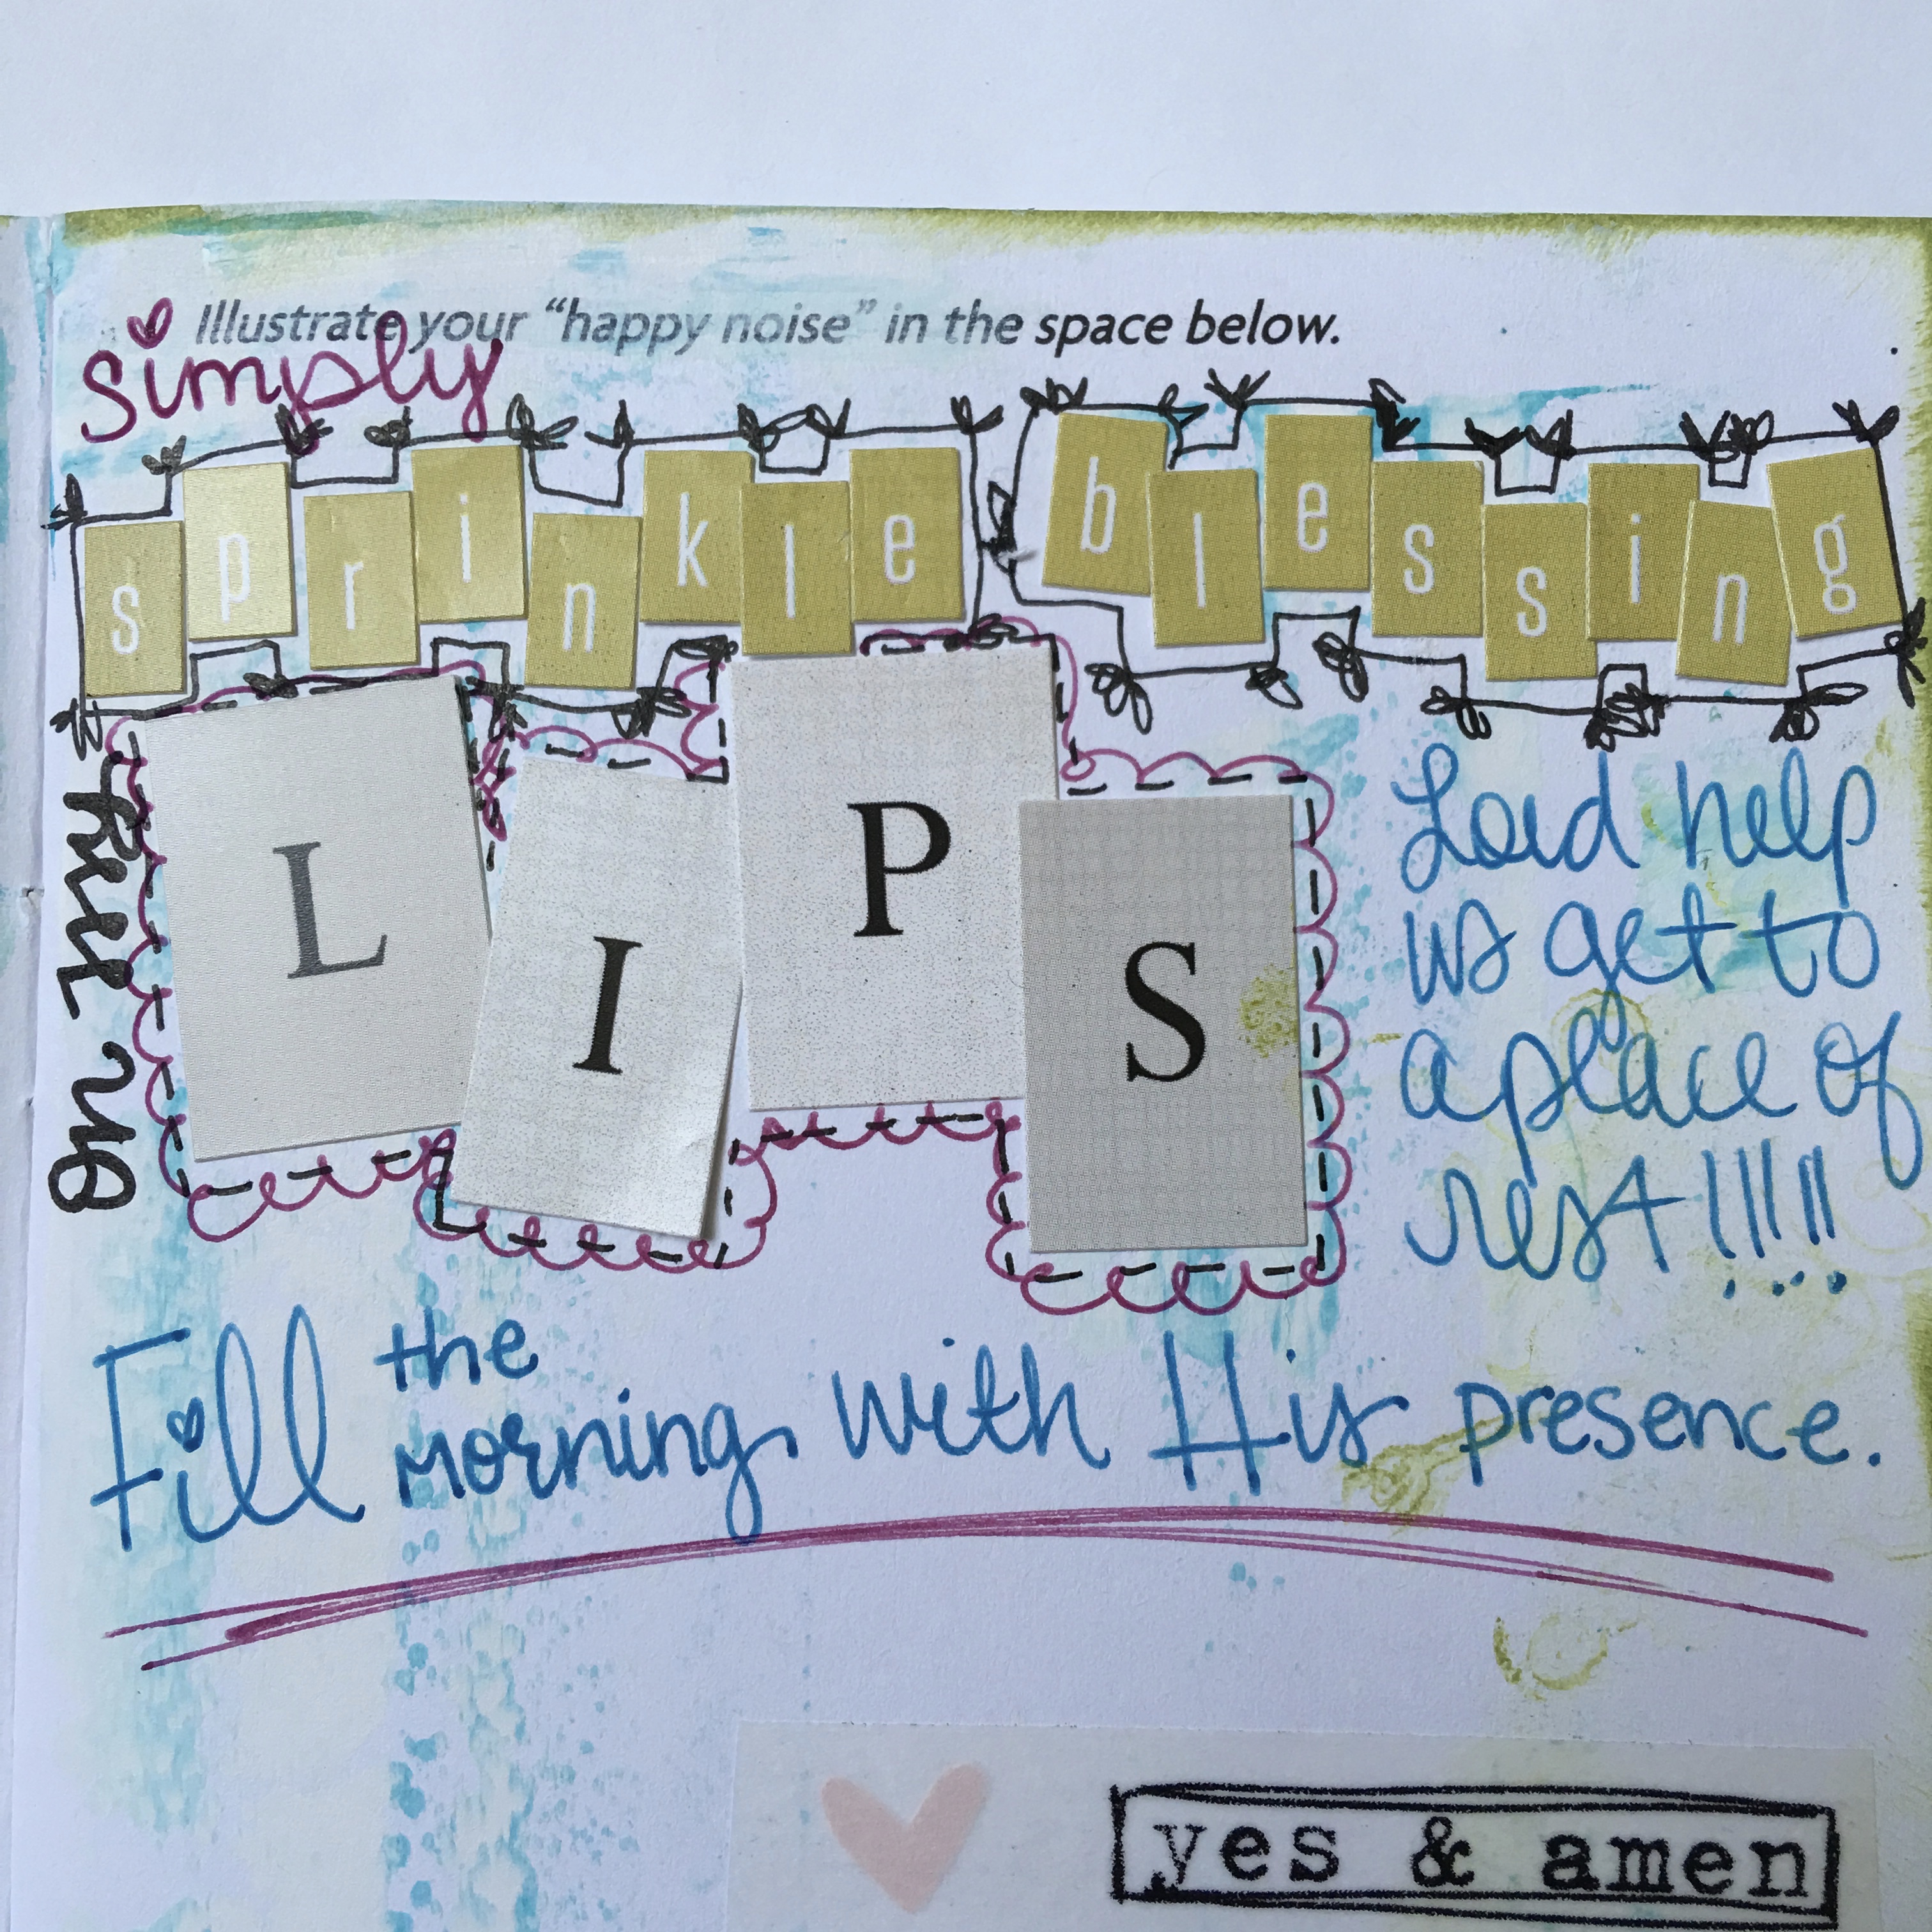 Illustrate your “happy noise” in the space below.
simply
sprinkle blessing
LIPS
Lord help
us get to
a place of
rest!!!!!
Fill the morning with His presence.
yes & amen